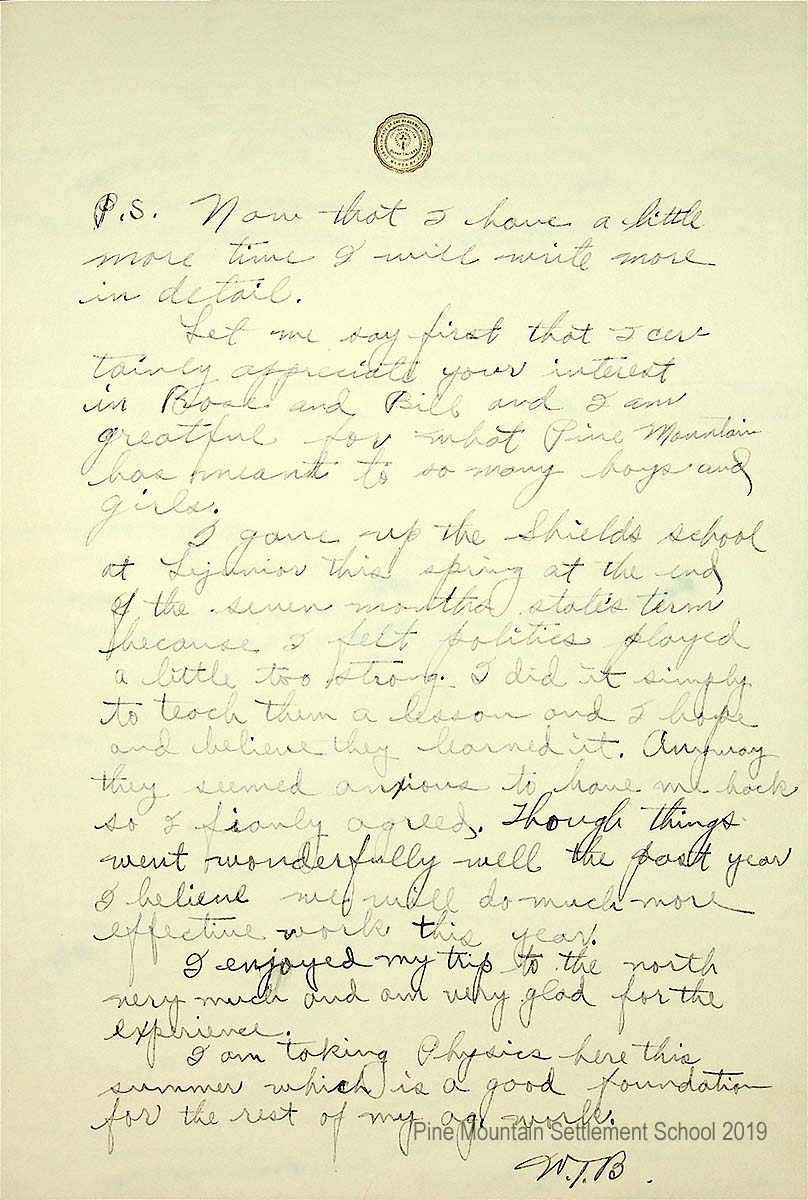 P.S. Now that I have a little
more time I will write more
in detail.
Let me say first that I cer
tainly appreciate your interest
in Rose and Bill and I am
greatful for what Pine Mountain
has meant to so many boys and
girls.
I gave up the Shields school
at Lejunior this spring at the end
of the seven months state term
because I felt politics played
a little too strong. I did it simply
to teach them a lesson and I hope
and believe they learned it. Anyway
they seemed anxious to have me back
so I fianly agreed. Though things
went wonderfully well the past year
I believe we will do much more
effective work this year.
I enjoyed my trip to the north
very much and am very glad for the
experience.
I am taking Physics here this
summer which is a good foundation
for the rest of my ag. work.
Pine Mountain Settlement School 2019
W.T.B.